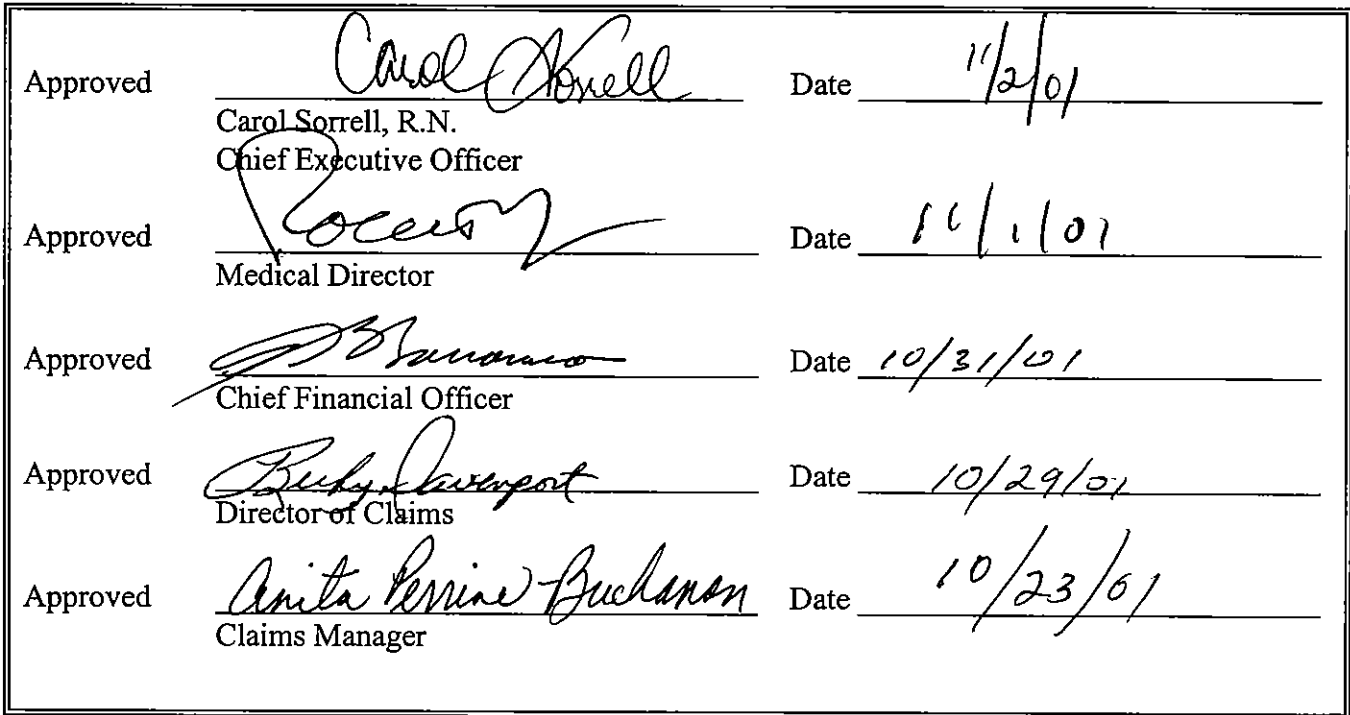 Approved Carol Sorrell Date 11/2/01
Carol Sorrell, R.N.
Chief Executive Officer
Approved Date 11/1/01
Medical Director
Approved Date 10/31/01
Chief Financial Officer
Approved Becky Davenport Date 10/29/01
Director of Claims
Approved Anita Perrine Buchanan Date 10/23/01
Claims Manager